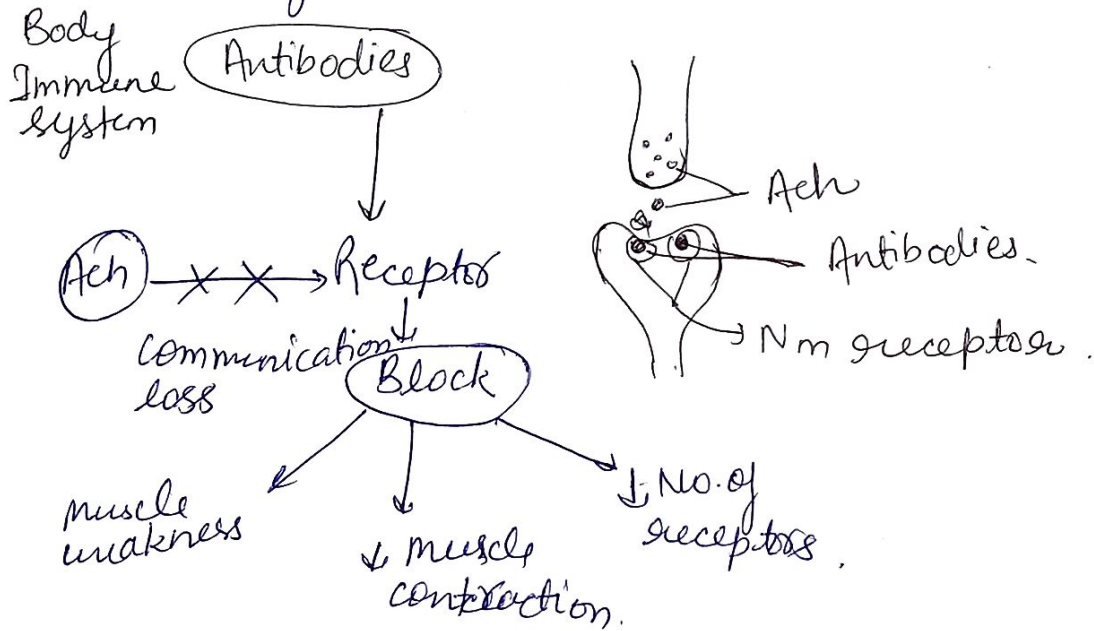 Body
Immune
system
Antibodies
Ach
Receptor
Communication
loss
Block
Muscle
weakness
↓ Muscle
contraction.
↓ No. of
receptors.
Ach
Antibodies.
Nm receptor.